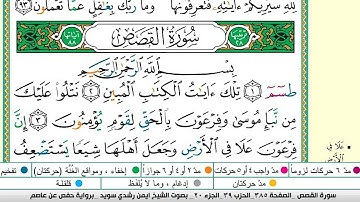 لِلَّهِ سَيُرِيكُمْ ءَايَٰتِهِۦ فَتَعْرِفُونَهَا وَمَا رَبُّكَ بِغَٰفِلٍ عَمَّا تَعْمَلُونَ ٩٣
سُورَةُ القَصَصِ
بِسْمِ ٱللَّهِ ٱلرَّحْمَٰنِ ٱلرَّحِيمِ
طسٓمٓ ١ تِلْكَ ءَايَٰتُ ٱلْكِتَٰبِ ٱلْمُبِينِ ٢ نَتْلُوا۟ عَلَيْكَ
مِن نَّبَإِ مُوسَىٰ وَفِرْعَوْنَ بِٱلْحَقِّ لِقَوْمٍ يُؤْمِنُونَ ٣ إِنَّ
فِرْعَوْنَ عَلَا فِى ٱلْأَرْضِ وَجَعَلَ أَهْلَهَا شِيَعًا يَسْتَضْعِفُ
عَلَا فِي الأَرْضِ
مدّ ٦ حركات لزوماً مدّ ٢ أو ٤ أو ٦ جوازاً إخفاء، ومواقع الغُنَّة (حركتان) تفخيم
مدّ واجب ٤ أو ٥ حركات مدّ حركتان إدغام، وما لا يُلفَظ قلقلة
سورة القصص _الصفحة ٣٨٥_ الحزب ٣٩_ الجزء ٢٠_ بصوت الشيخ أيمن رشدي سويد _برواية حفص عن عاصم